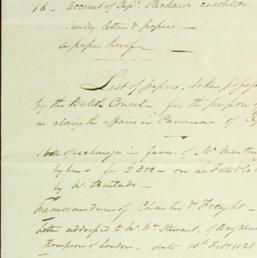 18 - account of Capt. Packard creditors.
Sundry letters & papers -
List of papers taken
by the British Consul for the purpose of
in closing the affairs in Panama of
of exchange in favor of Mr
by him for £300 - on
by W. Hurtado -
Memorandum of Charter & Freight -
Letter addressed to Mr Wm Stewart, of
Thompson of London. date 10th Feb 1828